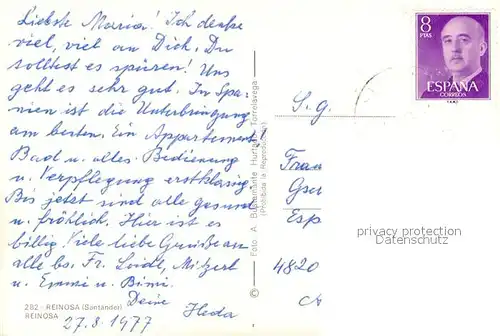 Liebste Maria! Ich denke
viel, viel an Dich. Du
solltest es spüren! Uns
geht es sehr gut. In Spa-
nien ist die Unterbringung
am besten. Ein Appartement!
Bad u. alles. Bedienung
u. Verpflegung erstklassig.
Bis jetzt sind alle gesund
u. fröhlich. Hier ist es
billig! Viele liebe Grüsse an
alle bs. Fr. Loidl,
u. Emmi u. Bimi.
Deine Heda
27.8.1977
282 - REINOSA (Santander)
REINOSA
Foto A. Bustamante Hurtado - Torrelavega
(Prohibida la Reproducción)
8
PTAS
ESPAÑA
CORREOS
S. g.
Frau
Esp
4820
privacy protection
Datenschutz